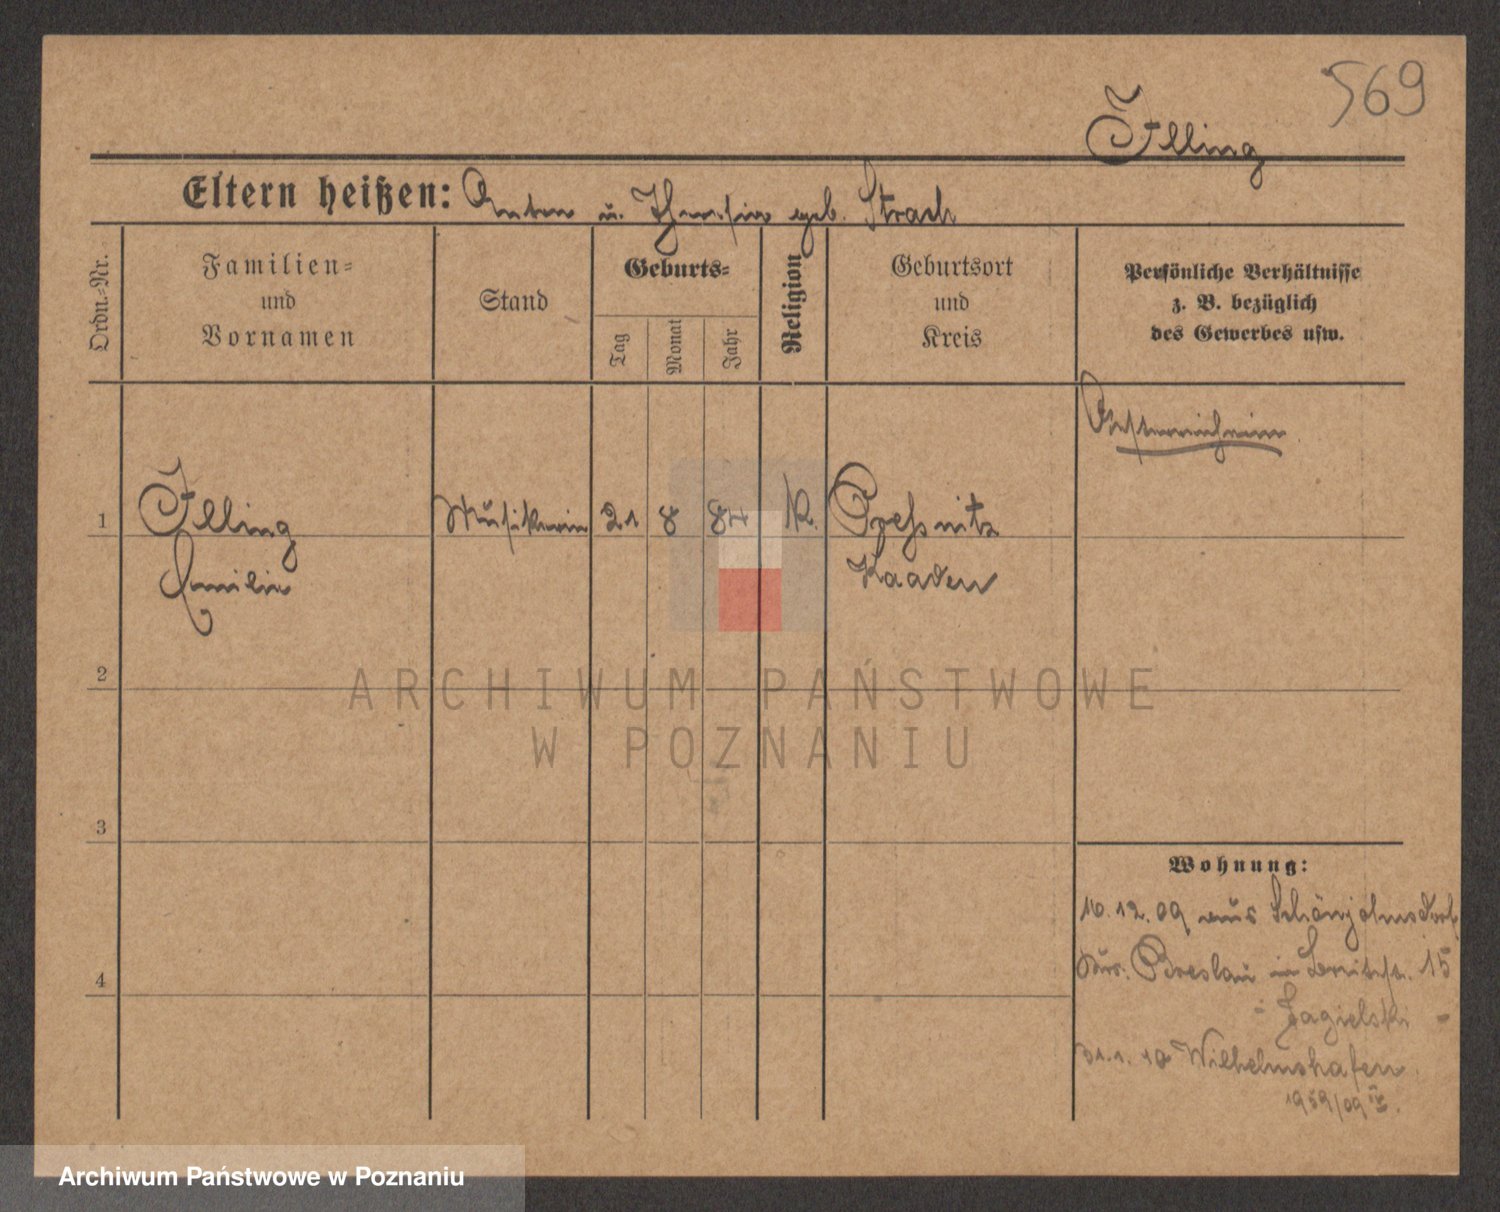 569
Illing
Eltern heißen: Anton u. Theresia geb. Strach
Ordn.-Nr.
Familien-
und
Vornamen
Stand
Geburts-
Tag
Monat
Jahr
Religion
Geburtsort
und
Kreis
Persönliche Verhältnisse
z. B. bezüglich
des Gewerbes usw.
Oesterreicherin
1 Illing Musikerin 21 8 84 K. Pressnitz
Emilie Kaaden
2
3
4
Wohnung:
10.12.09 aus Schönjohnsdorf
Krs. Breslau in 15
- Jagielski -
31.1.10 Wilhelmshafen
1959/09
ARCHIWUM PAŃSTWOWE
W POZNANIU
Archiwum Państwowe w Poznaniu